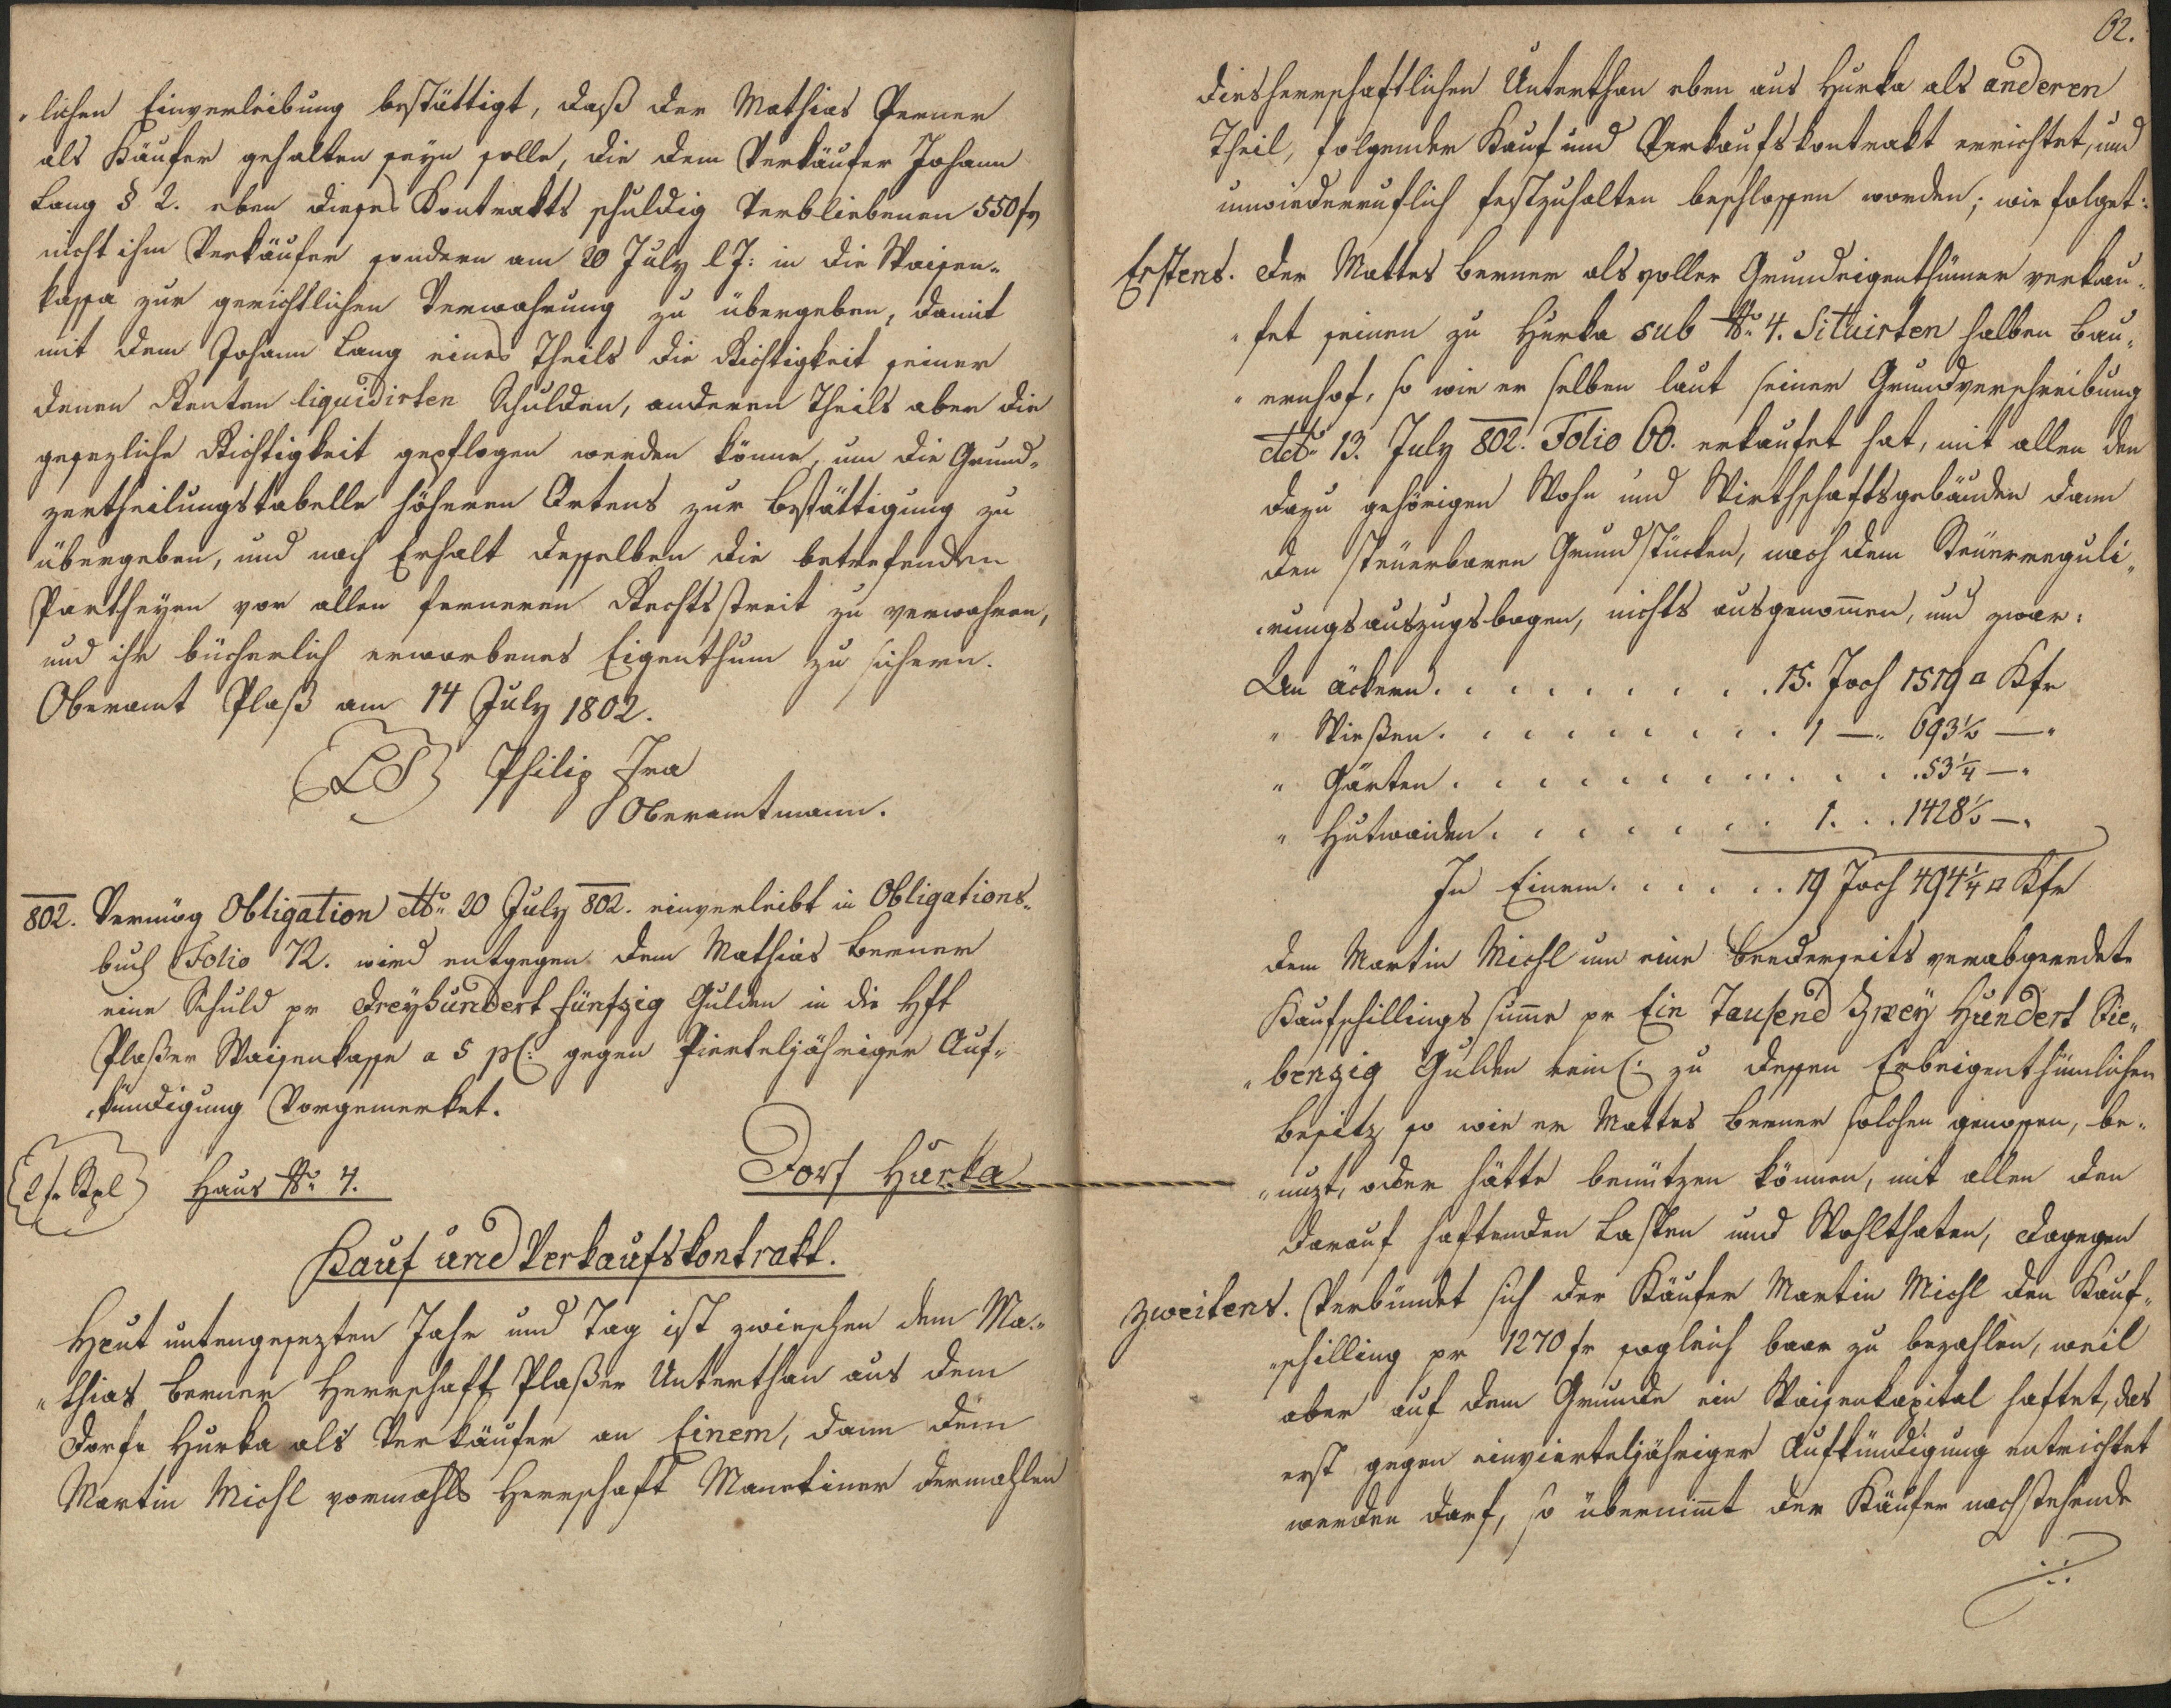 „lichen Einverleibung bestättigt, daß der Mathias Perner
als Käufer gehalten seyn solle, die dem Verkäufer Johann
Lang § 2. eben dieses Kontrakts schuldig verbliebenen 550 fr
nicht ihm Verkäufer sondern am 20 July l J: in die Waisen„
kassa zur gerichtlichen Verwahrung zu übergeben, damit
mit dem Johann Lang eines Theils die Richtigkeit seiner
denen Renten liquidirten Schulden, anderen Theils aber die
gesezliche Richtigkeit gepflogen werden könne, um die Grund„
zertheilungstabelle höheren Ortens zur Bestättigung zu
übergeben, und nach Erhalt desselben die betrefenden
Partheyen vor allen ferneren Rechtsstreit zu verwahren,
und ihr bücherlich erworbenes Eigenthum zu sichern.
Oberamt Plaß am 14 July 1802.
(LS) Philip Ira
Oberamtmann.
802. Vermög Obligation ddto 20 July 802. einverleibt in Obligations„
buch Folio 72. wird entgegen dem Mathias Berner
eine Schuld pr Dreyhundert fünfzig Gulden in die Hft
Plaßer Waisenkasse a 5 pC: gegen Vierteljähriger Auf„
„kündigung Vorgemerket.
(2 fr Stpl) Haus No 4. Dorf Hurka
Kauf und Verkaufskontrakt.
Heut untengesezten Jahr und Tag ist zwieschen dem Ma„
„thias Berner Herrschaft Plaßer Unterthan aus dem
Dorfe Hurka als Verkäufer an Einem, dann dem
Martin Michl vormahls Herrschaft Manetiner dermahlen
62.
diesherrschaftlichen Unterthan eben aus Hurka als anderen
Theil, folgender Kauf und Verkaufskontrakt errichtet, und
unwiederruflich festzuhalten beschlossen worden; wie folget:
Erstens. Der Mattes Berner als voller Grundeigenthümer verkau„
„fet seinen zu Hurka sub No 4. Situirten halben Bau„
„ernhof, so wie er selben laut seiner Grundverschreibung
ddto 13. July 802. Folio 60. erkaufet hat, mit allen den
dazu gehörigen Wohn und Wirthschaftsgebäuden dann
den steuerbaren Grundstücken, nach dem Steuerreguli„
„rungsauszugsbogen, nichts ausgenom̄en, und zwar:
An äckern. . . . . . . . . 15. Joch 1519 □ Kfr
„ Wießen. . . . . . . . . 1 —„ 693½ —„
„ Gärten . . . . . . . . . . . 53¼ —„
„ Hutwaiden. . . . . . . 1. . . 1428½ —„
In Einem. . . . . . 19 Joch 494¼ □ Kfr
dem Martin Michl um eine beederseits verabgeredete
Kaufschillings sum̄e pr Ein Tausend Zwey Hundert Sie„
„benzig Gulden rein: zu dessen Erbeigenthümlichen
Besitz so wie er Mattes Berner solchen genossen, be„
„nuzt, oder hätte benützen können, mit allen den
darauf haftenden Lasten und Wohlthaten, dagegen
Zweitens. Verbündet sich der Käufer Martin Michl den Kauf„
„schilling pr 1270 fr sogleich baar zu bezahlen, weil
aber auf dem Grunde ein Waisenkapital haftet, das
erst gegen einvierteljähriger Aufkündigung entrichtet
werden darf, so übernim̄t der Käufer nachstehende